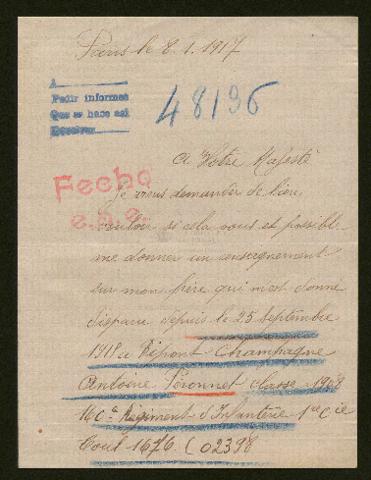 Paris le 8.1.1917
A
Pedir informes
Que se hace así
Resolver
48196
A Votre Majesté
Fecho
e.s.e.
Je vous demander de bien
vouloir si cela vous est possible
me donner un renseignement
sur mon frère qui m'est donné
disparu depuis le 25 Septembre
1915 a Ripont Champagne
Antoine Péronnet classe 1908
160e Régiment d'Infanterie 1re Cie
1676 02398